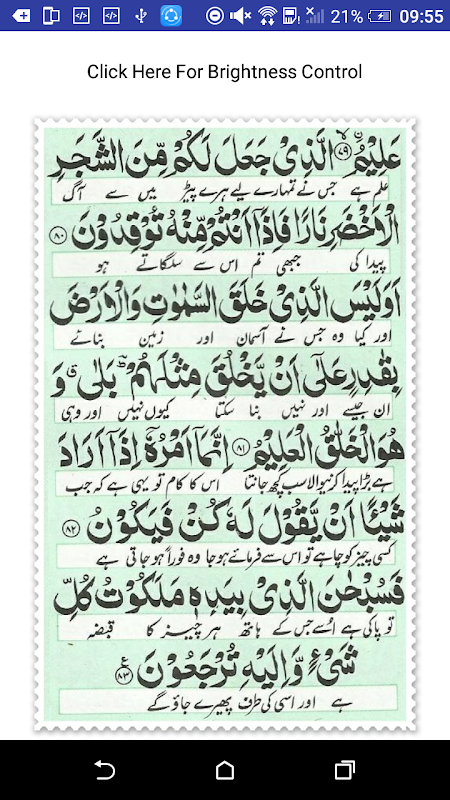 21% 09:55
Click Here For Brightness Control
عَلِيْمُ ۙ﴿۷۹﴾ الَّذِيْ جَعَلَ لَكُمْ مِّنَ الشَّجَرِ
علم ہے جس نے تمہارے لیے ہرے پیڑ میں سے آگ
الْاَخْضَرِ نَارًا فَاِذَاۤ اَنْتُمْ مِّنْهُ تُوْقِدُوْنَ ﴿۸۰﴾
پیدا کی جبھی تم اس سے سلگاتے ہو
اَوَلَيْسَ الَّذِيْ خَلَقَ السَّمٰوٰتِ وَالْاَرْضَ
اور کیا وہ جس نے آسمان اور زمین بنائے
بِقٰدِرٍ عَلٰۤى اَنْ يَّخْلُقَ مِثْلَهُمْ ؕ بَلٰى ۗ وَ
ان جیسے اور نہیں بنا سکتا کیوں نہیں اور وہی
هُوَ الْخَلّٰقُ الْعَلِيْمُ ﴿۸۱﴾ اِنَّمَاۤ اَمْرُهٗۤ اِذَاۤ اَرَادَ
ہے بڑا پیدا کرنیوالا سب کچھ جانتا اس کا کام تو یہی ہے کہ جب
شَيْـًٔا اَنْ يَّقُوْلَ لَهٗ كُنْ فَيَكُوْنُ ﴿۸۲﴾
کسی چیز کو چاہے تو اس سے فرمائے ہو جا وہ فوراً ہو جاتی ہے
فَسُبْحٰنَ الَّذِيْ بِيَدِهٖ مَلَكُوْتُ كُلِّ
تو پاکی ہے اُسے جس کے ہاتھ ہر چیز کا قبضہ
شَيْءٍ وَّاِلَيْهِ تُرْجَعُوْنَ ﴿۸۳﴾ ع
ہے اور اسی کی طرف پھیرے جاؤ گے